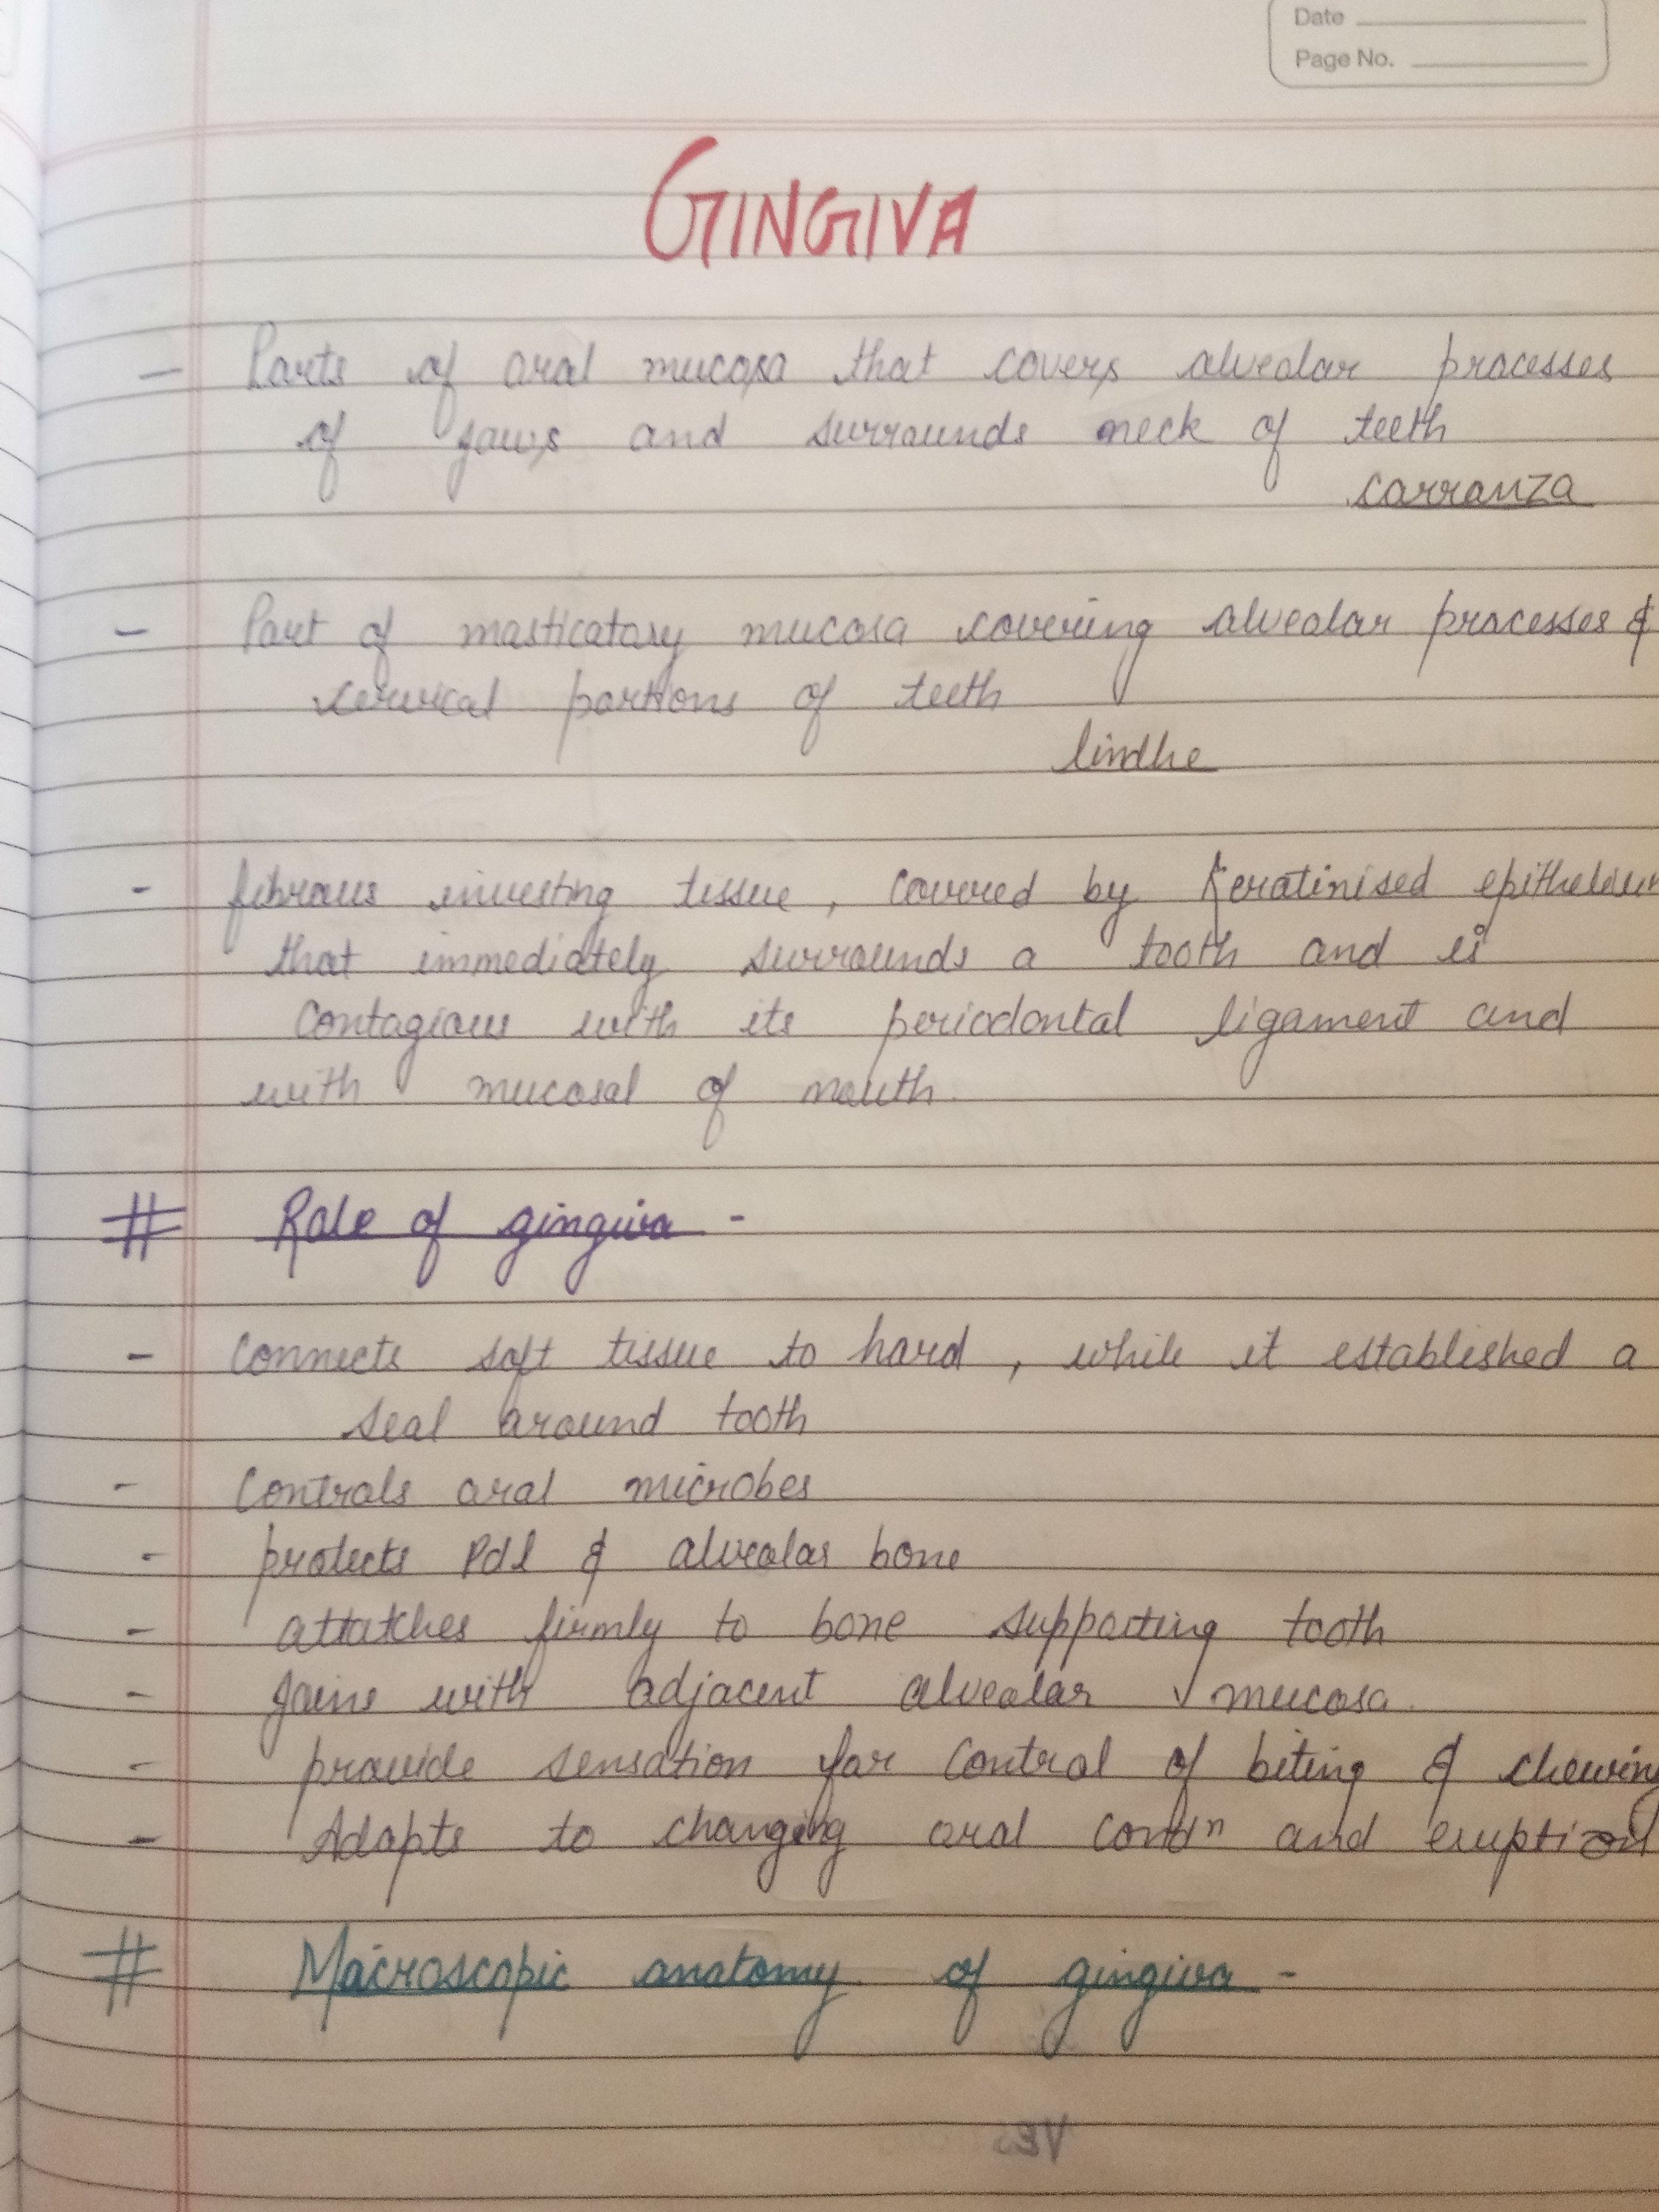 Date
Page No.
GINGIVA
- Parts of oral mucosa that covers alveolar processes
of jaws and surrounds neck of teeth
carranza
- Part of masticatory mucosa covering alveolar processes &
cervical portions of teeth
lindhe
- fibrous investing tissue, covered by keratinised epithelium
that immediately surrounds a tooth and is
contagious with its periodontal ligament and
with mucosal of mouth.
# Role of gingiva -
- connects soft tissue to hard, while it established a
seal around tooth
- Controls oral microbes
- protects Pdl & alveolar bone
- attatches firmly to bone supporting tooth
- joins with adjacent alveolar mucosa.
- provide sensation for control of biting & chewing
- Adapts to changing oral condn and eruption
# Macroscopic anatomy of gingiva -